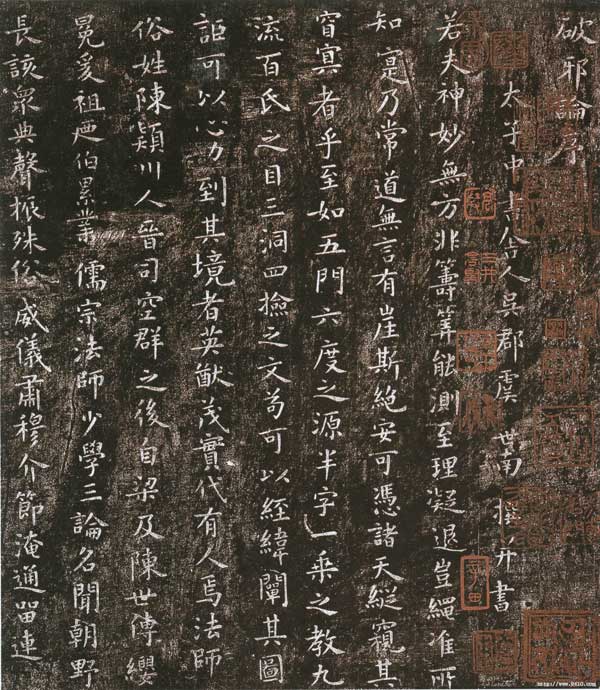 破邪論序
太子中書舍人吳郡虞世南撰并書
若夫神妙無方非籌筭能測至理凝邈豈繩准所
知寔乃常道無言有崖斯絕安可憑諸天縱窺其
窅冥者乎至如五門六度之源半字一乘之教九
流百氏之目三洞四撿之文苟可以經緯闡其圖
詎可以心力到其境者英猷茂實代有人焉法師
俗姓陳潁川人晉司空群之後自梁及陳世傳纓
冕爰祖及伯累業儒宗法師少學三論名聞朝野
長該衆典聲振殊俗威儀肅穆介節淹通留連
http://www.9610.com